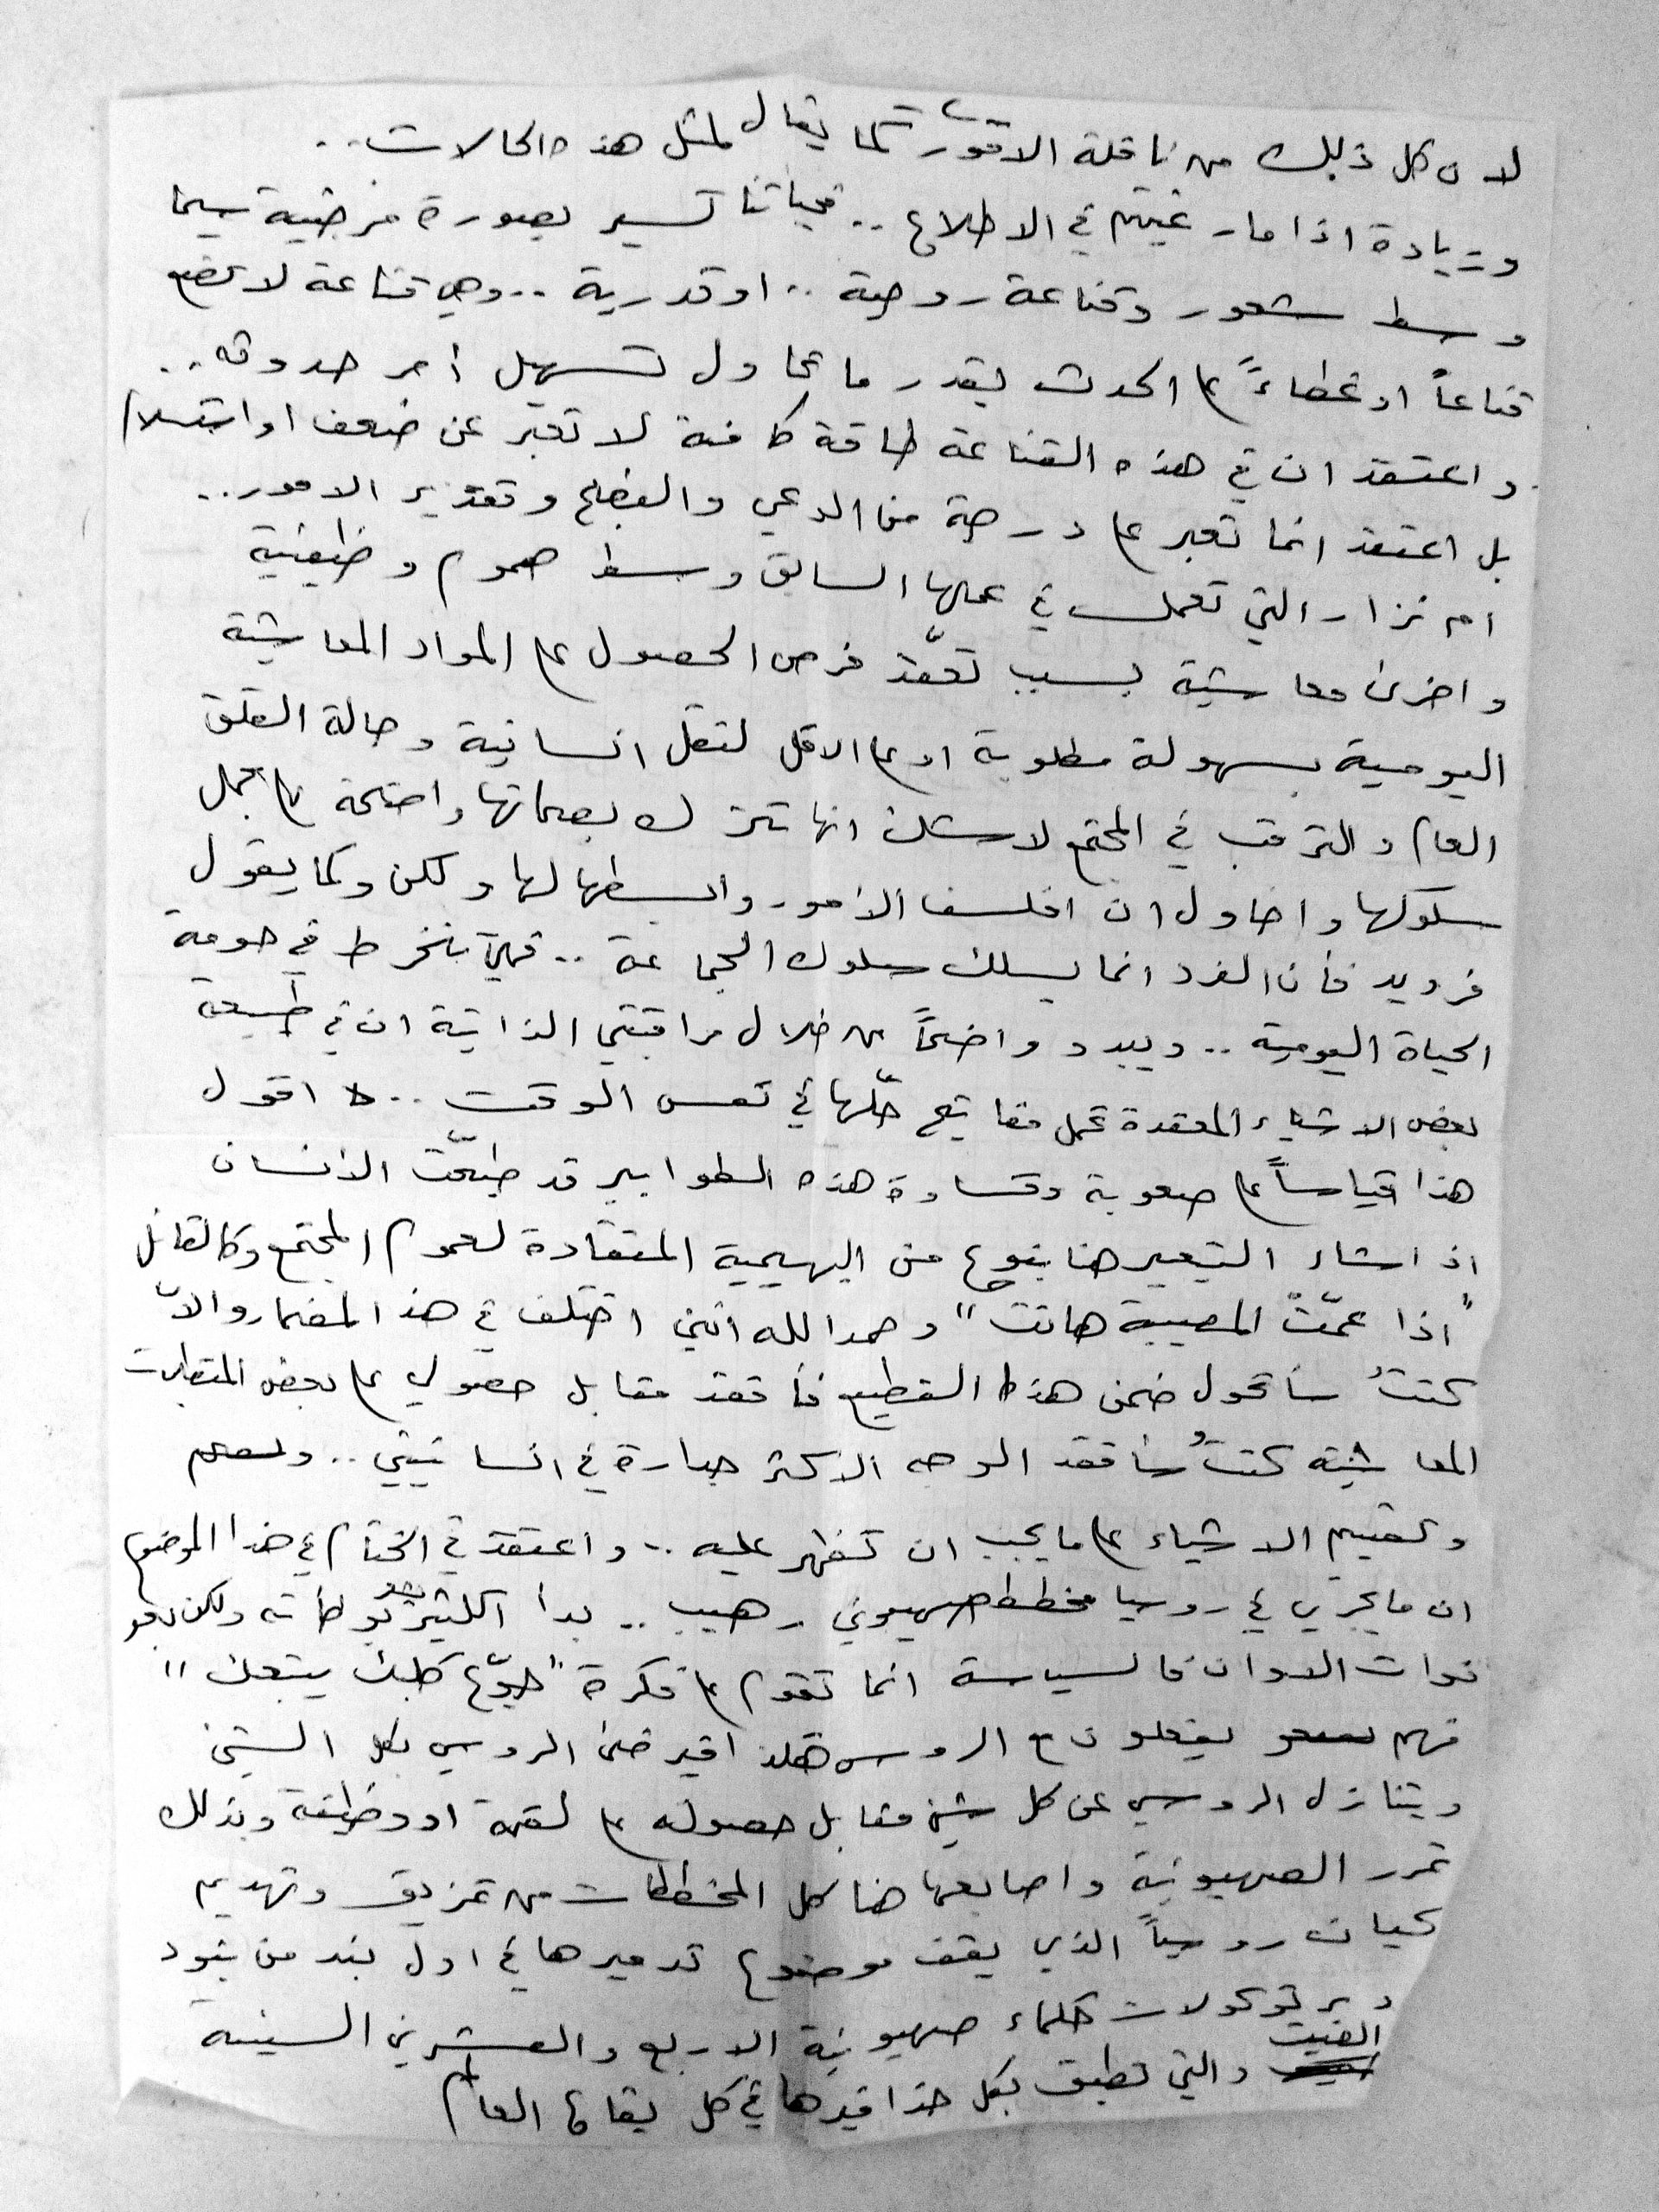 لان كل ذلك من نافلة الامور كما يقال لمثل هذه الحالات ..
وزيادة اذا ما رغبتم في الاطلاع .. فحياتنا تسير بصورة مرضية سيما
وسط شعور وقناعة روحية .. او قدرية .. وهي قناعة لا تضع
قناعاً او غطاءً على الحدث بقدر ما تحاول تسهيل أمر حدوثه ..
واعتقد ان في هذه القناعة طاقة كامنة لا تعبر عن ضعف او استسلام
بل اعتقد انما تعبر على درجة من الوعي والنضج وتقدير الامور ..
ام نزار التي تعمل في عملها السابق وسط هموم وظيفية
واخرى معاشية بسبب تعقّد فرص الحصول على المواد المعاشية
اليومية بسهولة مطلوبة او على الاقل لنقل انسانية وحالة القلق
العام والترقب في المجتمع لاشك انها تترك بصماتها واضحة على مجمل
سلوكها واحاول ان افلسف الامور وابسطها لها ولكن وكما يقول
فرويد فأن الفرد انما يسلك سلوك الجماعة .. فهي تنخرط في حومة
الحياة اليومية .. ويبدو واضحاً من خلال مراقبتي الذاتية ان في طبيعة
بعض الاشياء المعقدة تحمل مفاتيح حلّها في نفس الوقت .. اقول
هذا قياساً على صعوبة وقساوة هذه الطوابير قد طبعّت الأنسان
اذا شاء التعبير هنا بنوع من البهيمية المنقادة لعموم المجتمع وكالقائل
"اذا عمّت المصيبة هانت" وحمدا لله انني اختلف في هذا المضمار والاّ
كنتُ سأتحول ضمن هذا القطيع فأفقد مقابل حصولي على بعض المتطلبات
المعاشية كنتُ سأفقد الوجه الاكثر جدارة في انسانيتي ..
وتقييم الاشياء على ما يجب ان تظهر عليه .. واعتقد في الختام في هذا الموضوع
ان ما يجري في روسيا مخطط صهيوني رهيب .. بدأ الكثير بوطأته ولكن بعد
فوات الاوان فالسياسة انما تقوم على فكرة "جوّع كلبك يتبعك"
فهم يفعلون مع الروس هكذا فيرضى الروسي بكل الشيئ
ويتنازل الروسي عن كل شيئ مقابل حصوله على لقمة او وظيفة وبذلك
تمرر الصهيونية واصابعها هنا كل المخططات من تمزيق وتهديم
كيان روسيا الذي يقف موضوع تدميرها في اول بند من بنود
بروتوكولات حكماء صهيونية الاربع والعشرين السيئة
الصيت والتي تطبق بكل حذافيرها في كل بقاع العالم